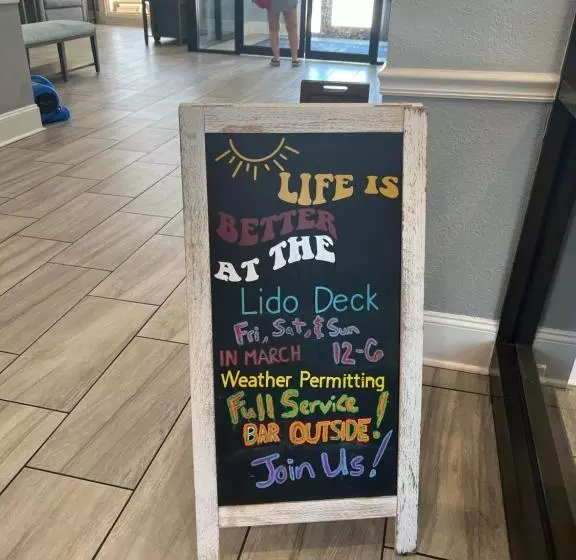 LIFE IS
BETTER
AT THE
Lido Deck
Fri, Sat, & Sun
IN MARCH 12-6
Weather Permitting
Full Service
BAR OUTSIDE!
Join Us!